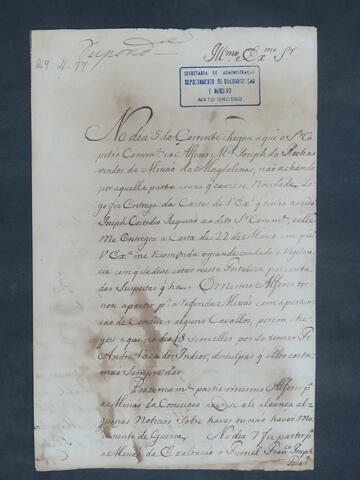 Illmo e Exmo Sr
29-4-77
SECRETARIA DE ADMINISTRAÇÃO
DEPARTAMENTO DE DOCUMENTAÇÃO
E ARQUIVO
MATO GROSSO
No dia 5 do Corrente chegou aqui o Sr Ca
pitão Comme e o Alferes Mel Joseph da Rocha
vindos da Missão da Magdalena, não achando
por aquella parte couza q cauze Novidade, Lo
go fiz Entrega da Carta de V Exa q tinha trazido
Joseph Coitodio Requião ao dito Sr Comme, e elle
me Entregou a Carta de 22 de Marco em que
V Exa me recomenda o grande cuidado e Vigelan
cia com q Se deve estar nesta Fortaleza por conta
das Suspeitas q ha. O mesmo Alferes tor
nou a partir pa a referida Missão com a pertten
são de Conduzir alguns Cavallos, porem che
gou aqui no dia 18 sem elles por se temer Fr
Andre Vaca dos Indios, disculpas q elles costu
mão sempre dar
Proxemamte partio o mesmo Alferes pa
a Missão da Conceicão a ver se ali alcanca al
gumas Noticias Sobre haver ou não haver Mo
vimento de Guerra. No dia 7 fiz partir pa
a Missão da Exaltacão o Furriel Franco Joseph